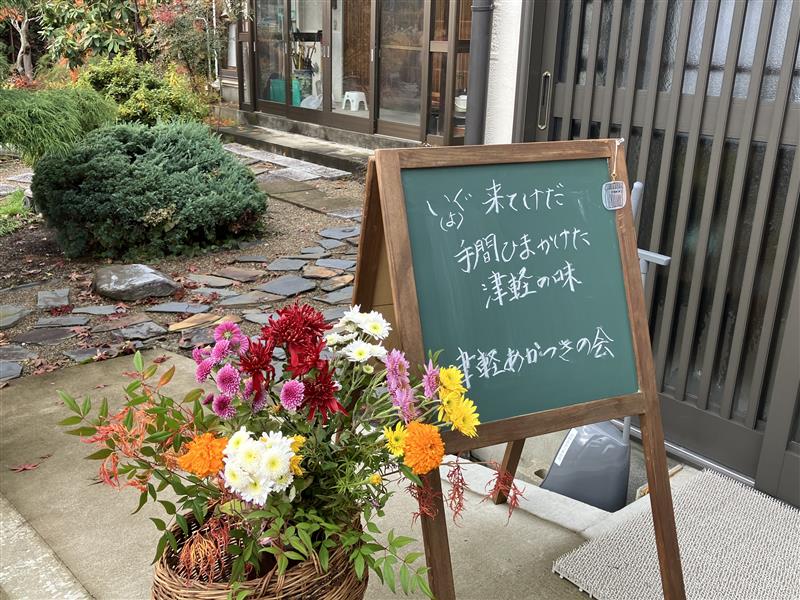 いぐ(よぐ) 来てけだ
手間ひまかけた
津軽の味
津軽あかつきの会